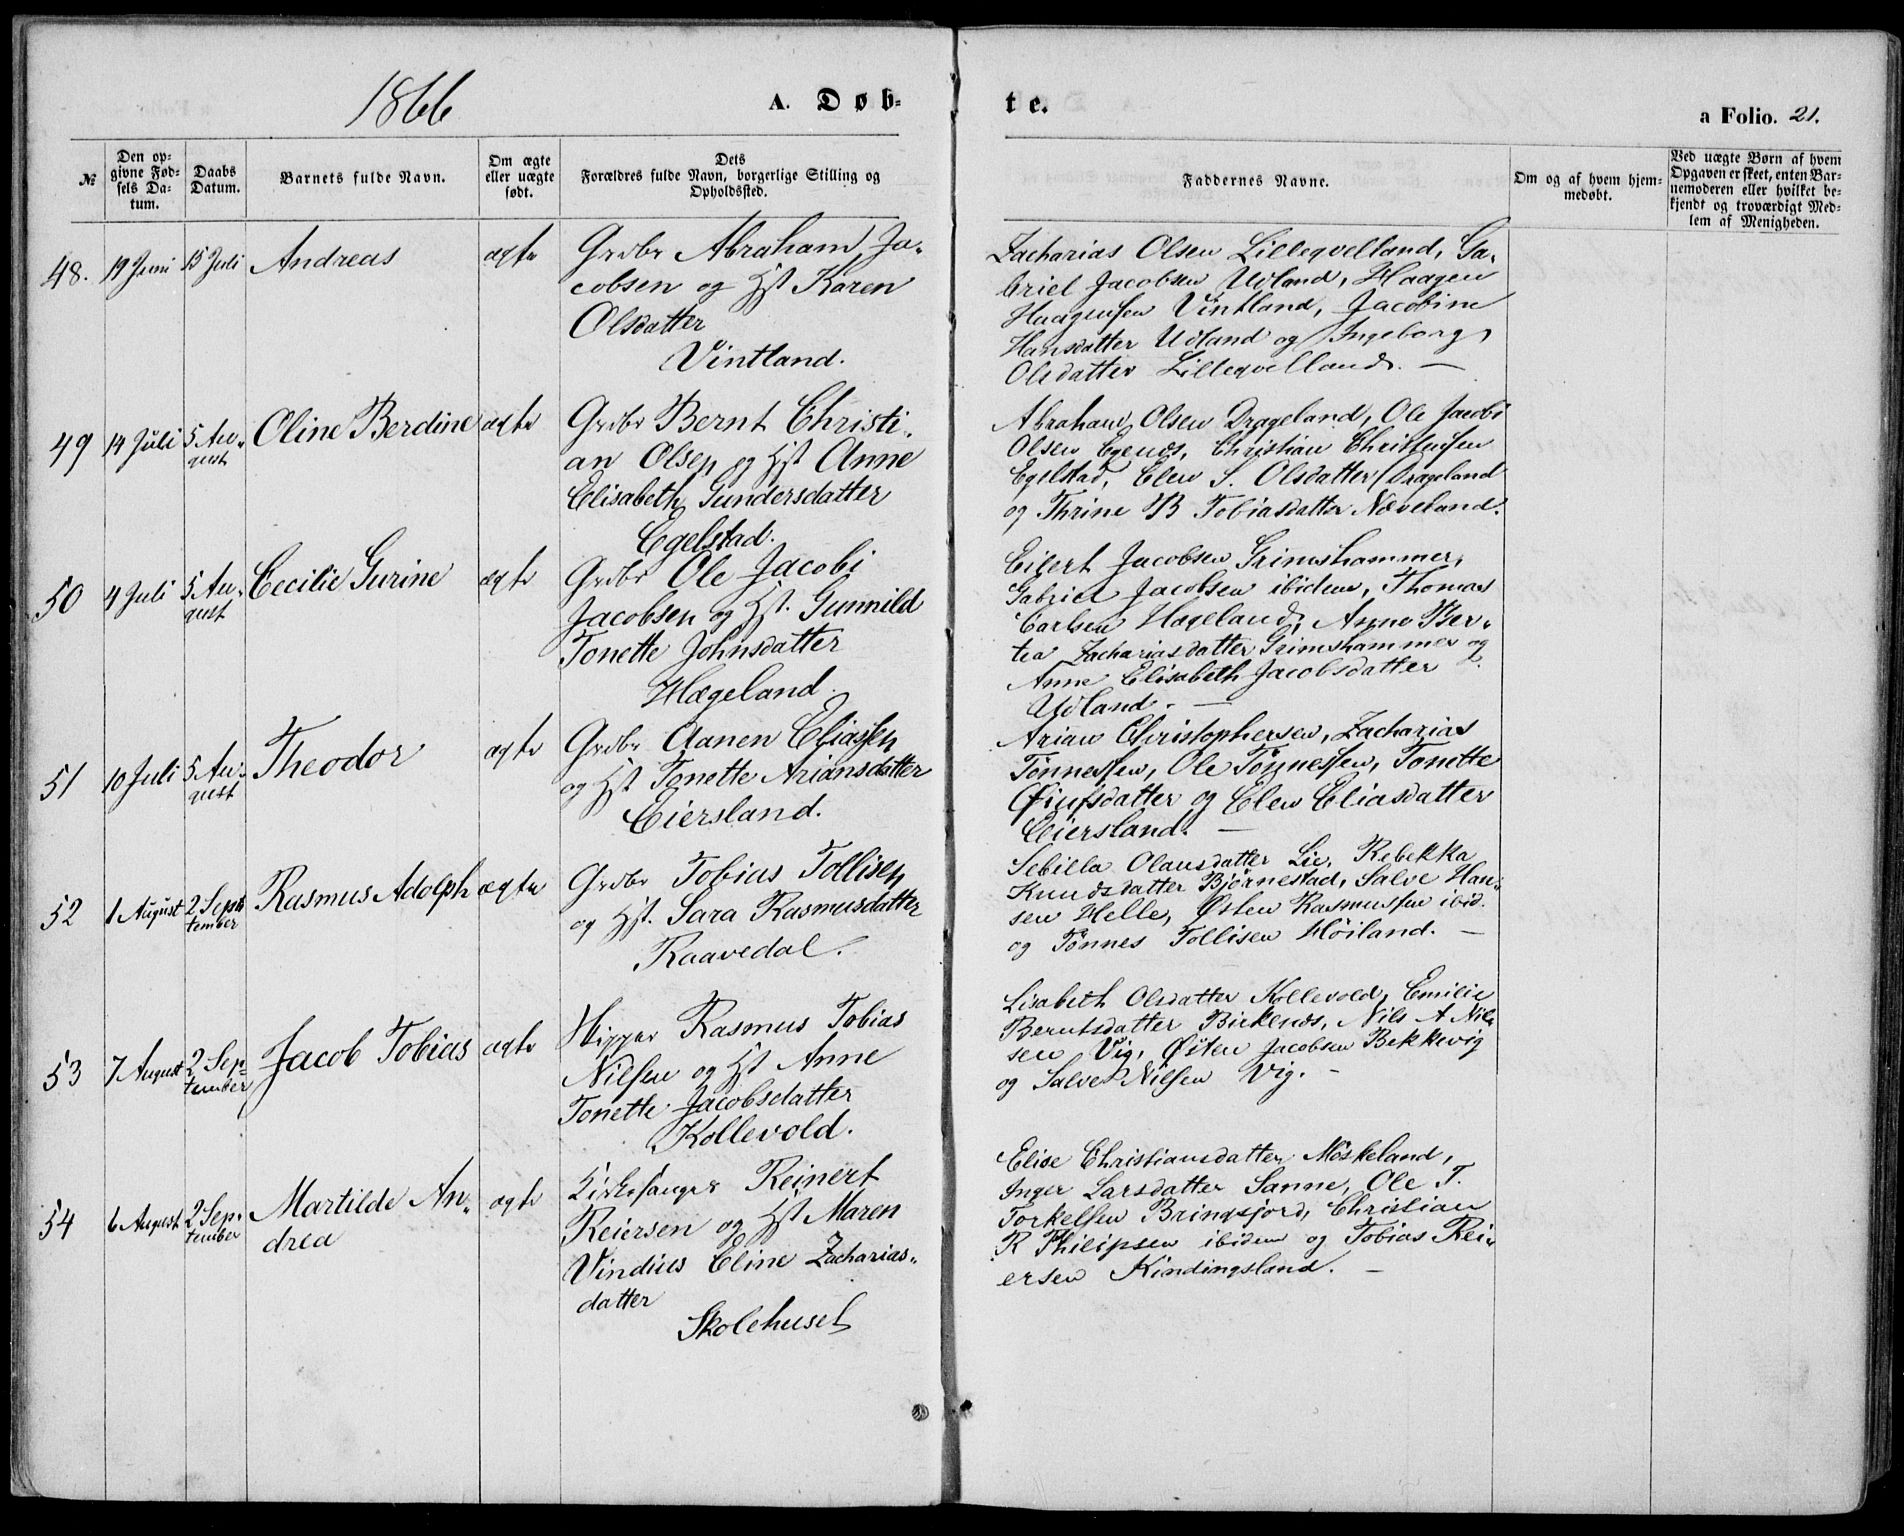 1866
A. Døb-
te.
a Folio. 21.
№
Den op-
givne Fød-
sels Da-
tum.
Daabs
Datum.
Barnets fulde Navn.
Om ægte
eller uægte
født.
Dets
Forældres fulde Navn, borgerlige Stilling og
Opholdssted.
Faddernes Navne.
Om og af hvem hjem-
medøbt.
Ved uægte Børn af hvem
Opgaven er skeet, enten Bar-
nemoderen eller hvilket be-
kjendt og troværdigt Med-
lem af Menigheden.
48. 19 Juni 15 Juli Andreas ægte
Grdbr Abraham Ja-
cobsen og Hst Karen
Olsdatter
Vintland.
Zacharias Olsen Lilleqvelland, Ga-
briel Jacobsen Udland, Haagen
Haagensen Vintland, Jacobine
Hansdatter Udland og Ingeborg
Olsdatter Lilleqvelland. —
49 14 Juli 5 Au-
gust
Oline Berdine ægte
Grdbr Bernt Christi-
an Olsen og Hst Anne
Elisabeth Gundersdatter
Egelstad.
Abraham Olsen Drageland, Ole Jacobi
Olsen Egends, Christian Christensen
Egelstad, Elen S. Olsdatter Drageland
og Thrine B Tobiasdatter Næveland.
50 4 Juli 5 Au-
gust
Cecilie Gurine ægte
Grdbr Ole Jacobi
Jacobsen og Hst. Gunnild
Tonette Johnsdatter
Hægeland.
Eilert Jacobsen Grimshammer,
Gabriel Jacobsen ibidem, Thomas
Carlsen Hægeland, Anne Ber-
tea Zachariasdatter Grimshammer og
Anne Elisabeth Jacobsdatter
Udland. —
51 10 Juli 5 Au-
gust
Theodor ægte
Grdbr Aanen Eliassen
og Hst Tonette Ariansdatter
Eiersland.
Arian Christophersen, Zacharias
Tønnessen, Ole Tønnessen, Tonette
Øiufsdatter og Elen Eliasdatter
Eiersland. —
52 1 August 2 Sep-
tember
Rasmus Adolph ægte
Grdbr Tobias Tollisen
og Hst. Sara Rasmusdatter
Raavedal.
Sebilla Olausdatter Lie, Rebekka
Knudsdatter Bjørnestad, Salve Han-
sen Helle, Østen Rasmussen ibid.
og Tønnes Tollisen Høiland. —
53 7 August 2 Sep-
tember
Jacob Tobias ægte
Rasmus Tobias
Nilsen og Hst Anne
Tonette Jacobsdatter
Kollevold.
Lisabeth Olsdatter Kollevold, Emilie
Berntsdatter Birkends, Nils A Nil-
sen Vig, Østen Jacobsen Bekkevig
og Salve Nilsen Vig. —
54 6 August 2 Sep-
tember
Martilde An-
drea
ægte
Kirkesanger Reinert
Reiersen og Hst Maren
Vindius Eline Zacharias-
datter
Skolehuset
Elise Christiansdatter Møskeland,
Inger Larsdatter Sanne, Ole T.
Torkelsen Bringsjord, Christian
R Philipsen ibidem og Tobias Rei-
ersen Kindingsland. —